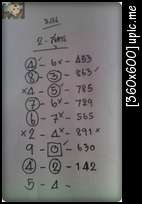 2 - ตัวตรง
④ - 6× - 453
⑧ - ③ - 863✓
×4 - ⑤ - 785
⑦ - 6× - 729
⑥ - 7× - 565
×2 - 4× - 891×
9 - 0 - 630
④ - ② - 142
5 - 4 -
[360x600] upic.me